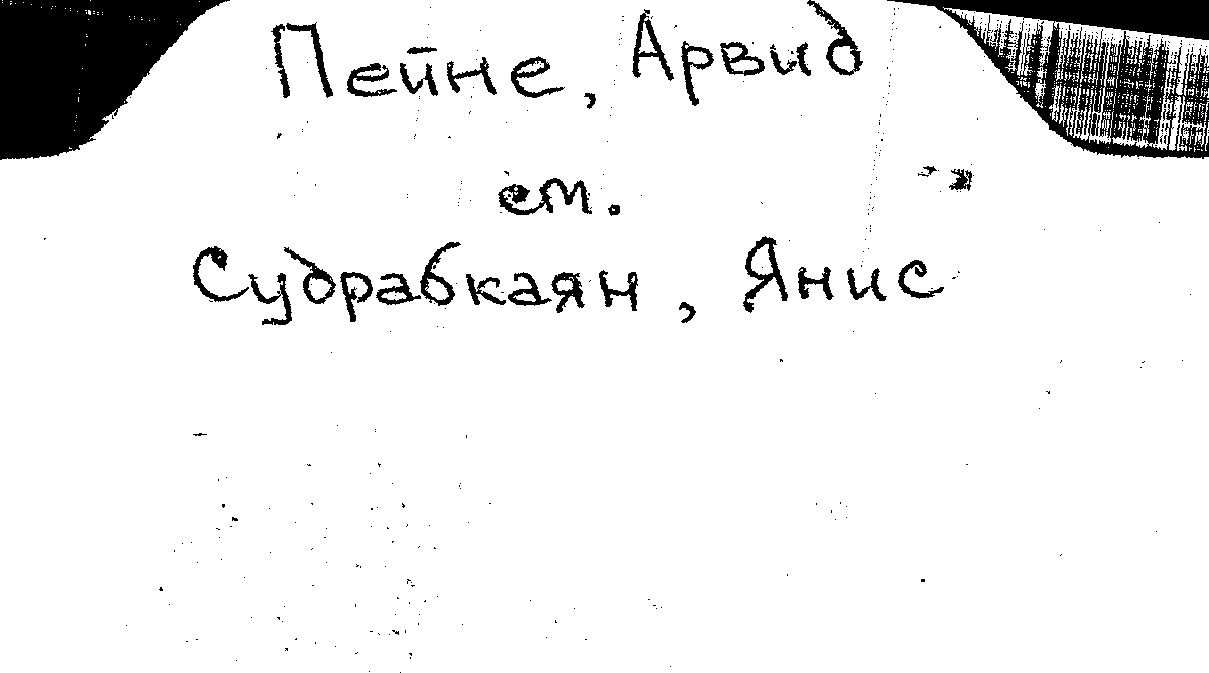 Пейне, Арвид
см.
Судрабкаян, Янис